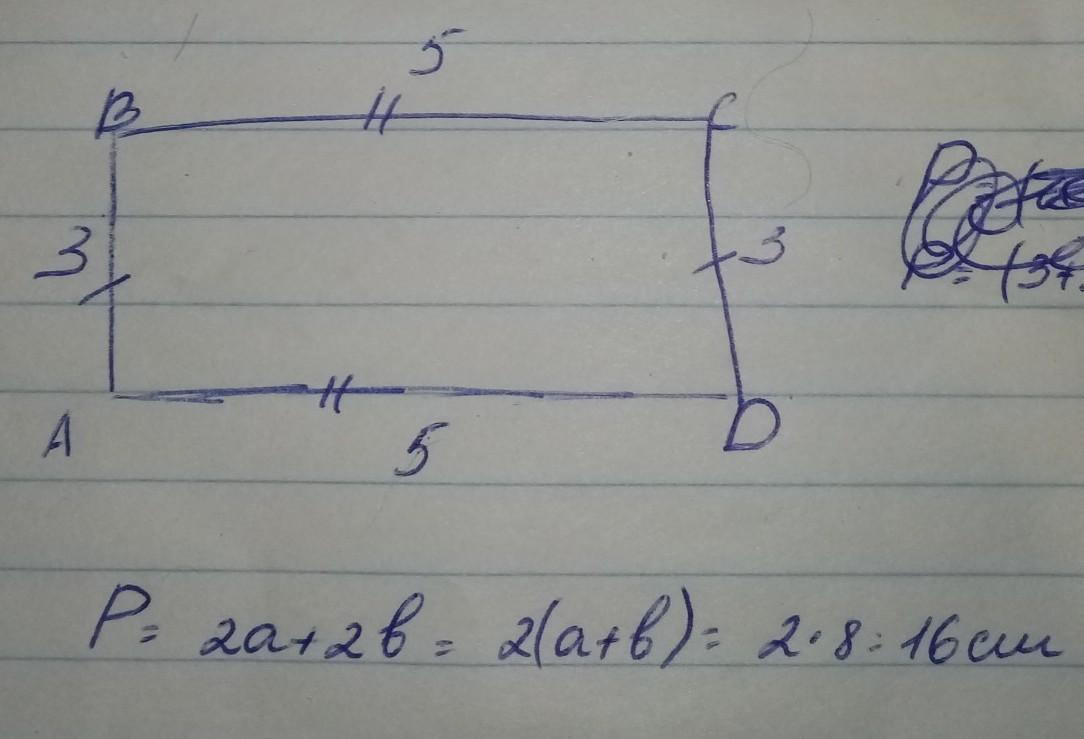 5
B
C
3
3
A
D
5
P= 2a+2b = 2(a+b)= 2·8=16см